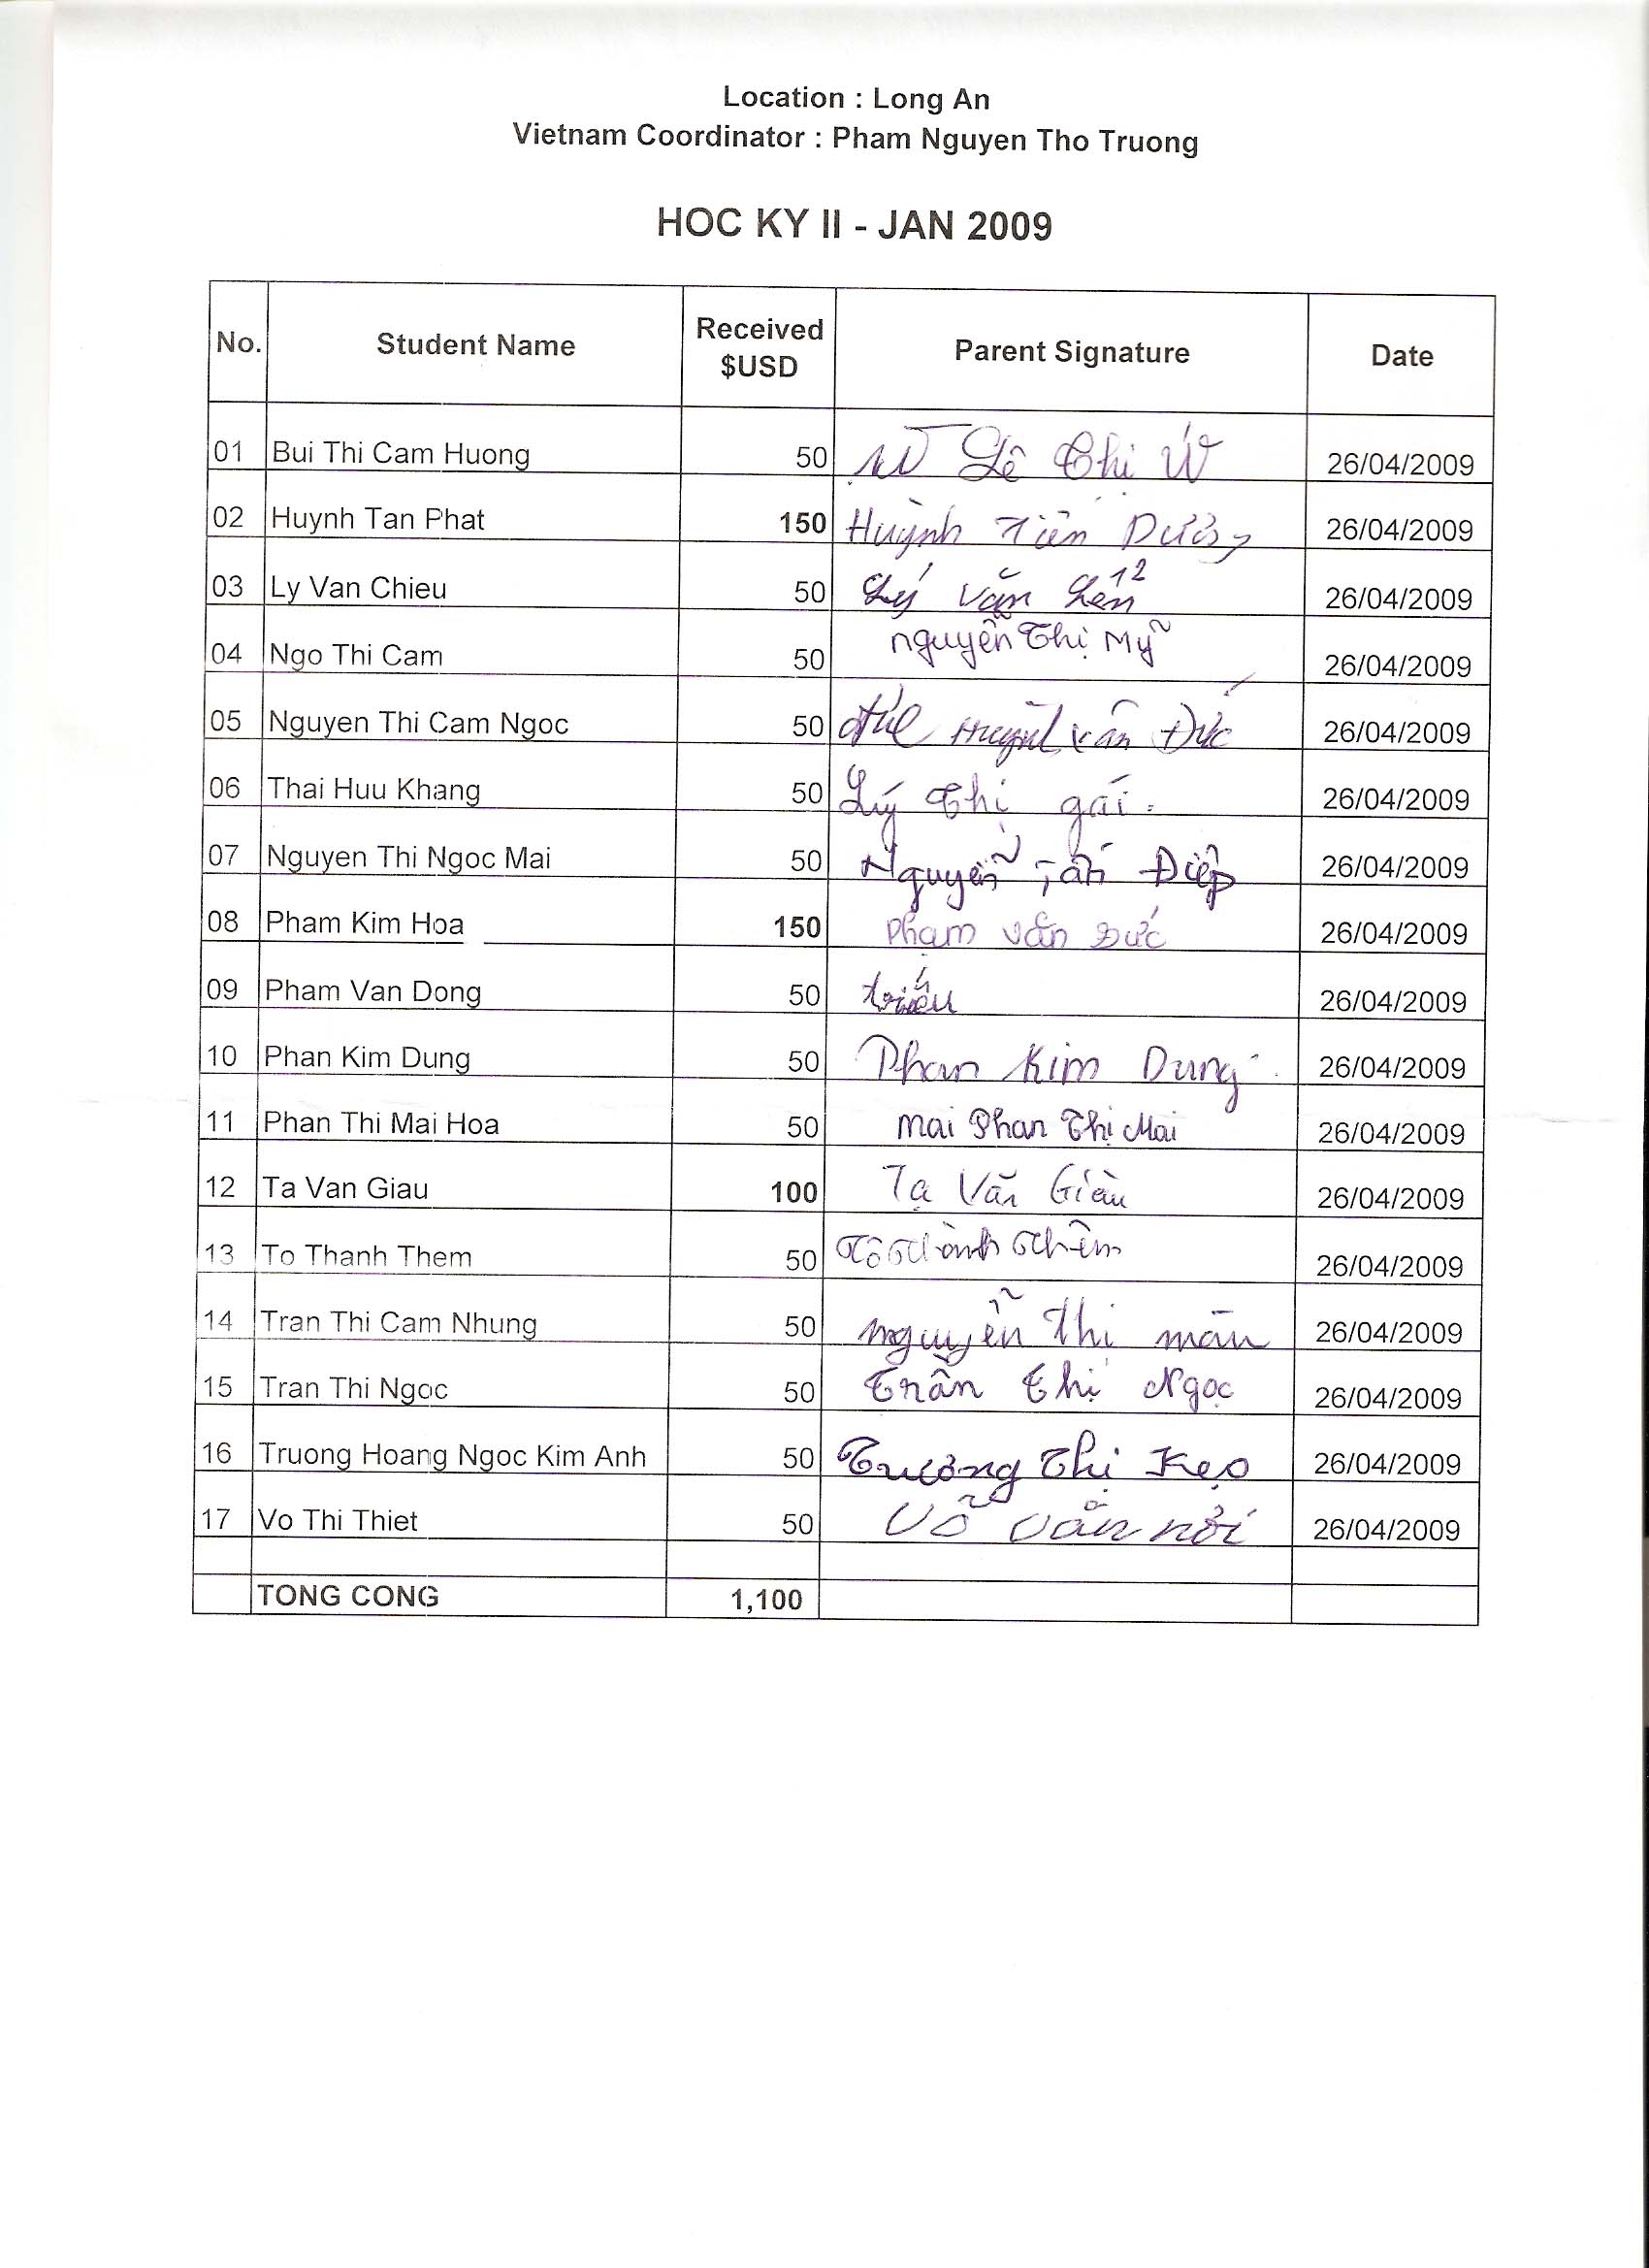 Location : Long An
Vietnam Coordinator : Pham Nguyen Tho Truong
HOC KY II - JAN 2009
No. Student Name Received $USD Parent Signature Date
01 Bui Thi Cam Huong 50 Lê Thị Ú 26/04/2009
02 Huynh Tan Phat 150 Huỳnh Tiến 26/04/2009
03 Ly Van Chieu 50 Lý Văn 26/04/2009
04 Ngo Thi Cam 50 Nguyễn Thị Mỹ 26/04/2009
05 Nguyen Thi Cam Ngoc 50 Huỳnh Văn Đức 26/04/2009
06 Thai Huu Khang 50 Lý Thị gái. 26/04/2009
07 Nguyen Thi Ngoc Mai 50 Nguyễn Tấn Điệp 26/04/2009
08 Pham Kim Hoa 150 Phạm Văn Đức 26/04/2009
09 Pham Van Dong 50 26/04/2009
10 Phan Kim Dung 50 Phan Kim Dung 26/04/2009
11 Phan Thi Mai Hoa 50 Mai Phan Thị Mai 26/04/2009
12 Ta Van Giau 100 Tạ Văn Giàu 26/04/2009
13 To Thanh Them 50 Tô Thành Thêm 26/04/2009
14 Tran Thi Cam Nhung 50 Nguyễn Thị 26/04/2009
15 Tran Thi Ngoc 50 Trần Thị Ngọc 26/04/2009
16 Truong Hoang Ngoc Kim Anh 50 Trương Thị Kẹo 26/04/2009
17 Vo Thi Thiet 50 Võ Văn 26/04/2009
TONG CONG 1,100